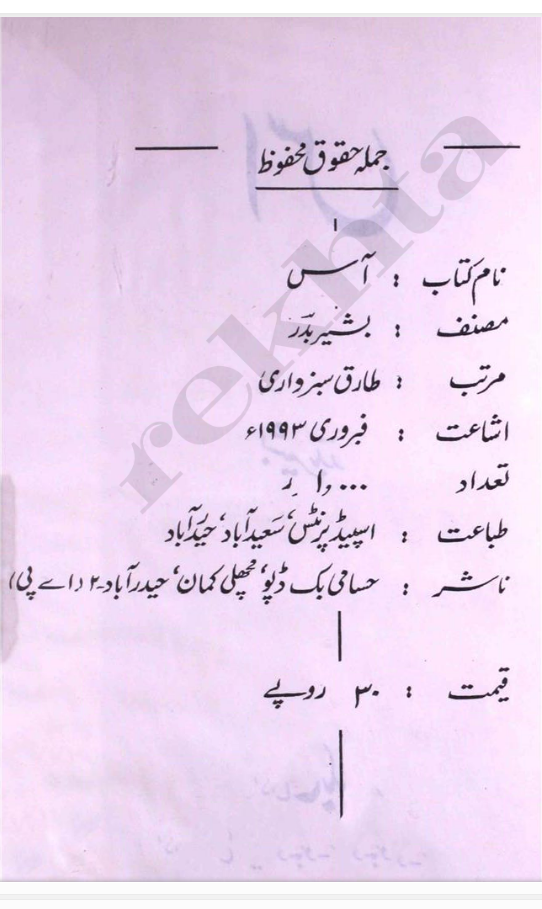 جملہ حقوق محفوظ
نام کتاب : آس
مصنف : بشیر بدر
مرتب : طارق سبزواری
اشاعت : فبروری ۱۹۹۳ء
تعداد
طباعت : اسپیڈ پرنٹس، سعیدآباد، حیدرآباد
ناشر : حسامی بک ڈپو، مچھلی کمان، حیدرآباد-۲ (اے پی)
قیمت : ۳۰ روپے
rekhta